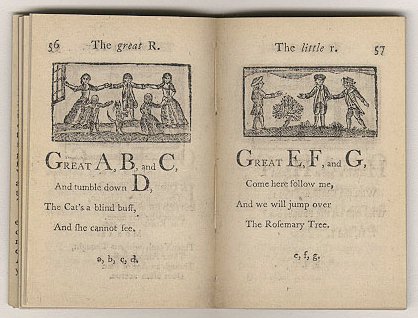 56 The great R.
GREAT A, B, and C,
And tumble down D,
The Cat's a blind buff,
And she cannot see.
a, b, c, d.
The little r. 57
GREAT E, F, and G,
Come here follow me,
And we will jump over
The Rosemary Tree.
e, f, g.